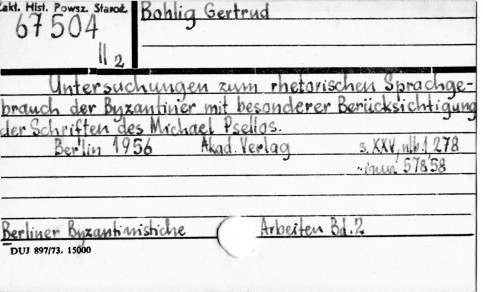 Zakł. Hist. Powsz. Staroż.
Bohlig Gertrud
67504
II 2
Untersuchungen zum rhetorischen Sprachge-
brauch der Byzantiner mit besonderer Berücksichtigung
der Schriften des Michael Psellos.
Berlin 1956 Akad. Verlag s. XXV, nlb. 1 278
inw. 57858
Berliner Byzantinistiche Arbeiten Bd. 2
DUJ 897/73. 15000